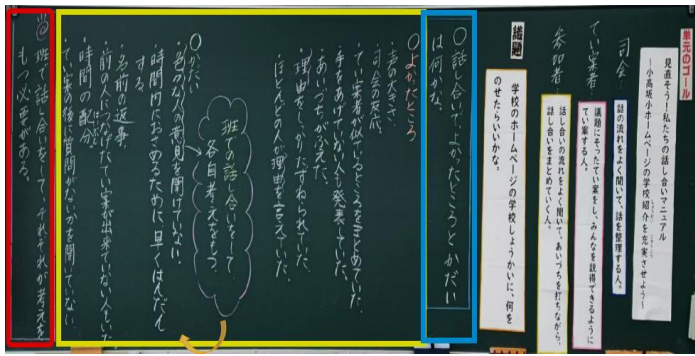 単元のゴール
見直そう！私たちの話し合いマニュアル
～小高坂小ホームページの学校紹介を充実させよう～
司会
話の流れをよく聞いて、話を整理する人。
てい案者
議題にそったてい案をし、みんなを説得できるように
てい案する人。
参加者
話し合いの流れをよく聞いて、あいづちを打ちながら、
話し合いをまとめていく人。
議題
学校のホームページの学校しょうかいに、何を
のせたらいいかな。
○話し合いで、よかったところとかだい
は何かな。
○よかったところ
・声の大きさ
・司会の反応
・てい案者が
ところをまとめていた。
・手をあげていない人も発表していた。
・あいづちがふえた。
・理由をくわしくたずねられていた。
・ほとんどの人が理由を言えていた。
班での話し合いをして
各自考えをもつ
○かだい
・色々な人の意見を聞けていない。
時間内におさめるために、早くはんだん
する。
・名前の返事
・前の人につなげたてい案が出来ていない人もいた。
・時間の配分
はいぶん
・てい案の後に質問がないかを聞いていない。
め
班で話し合いをして、それぞれが考えを
もつ必要がある。